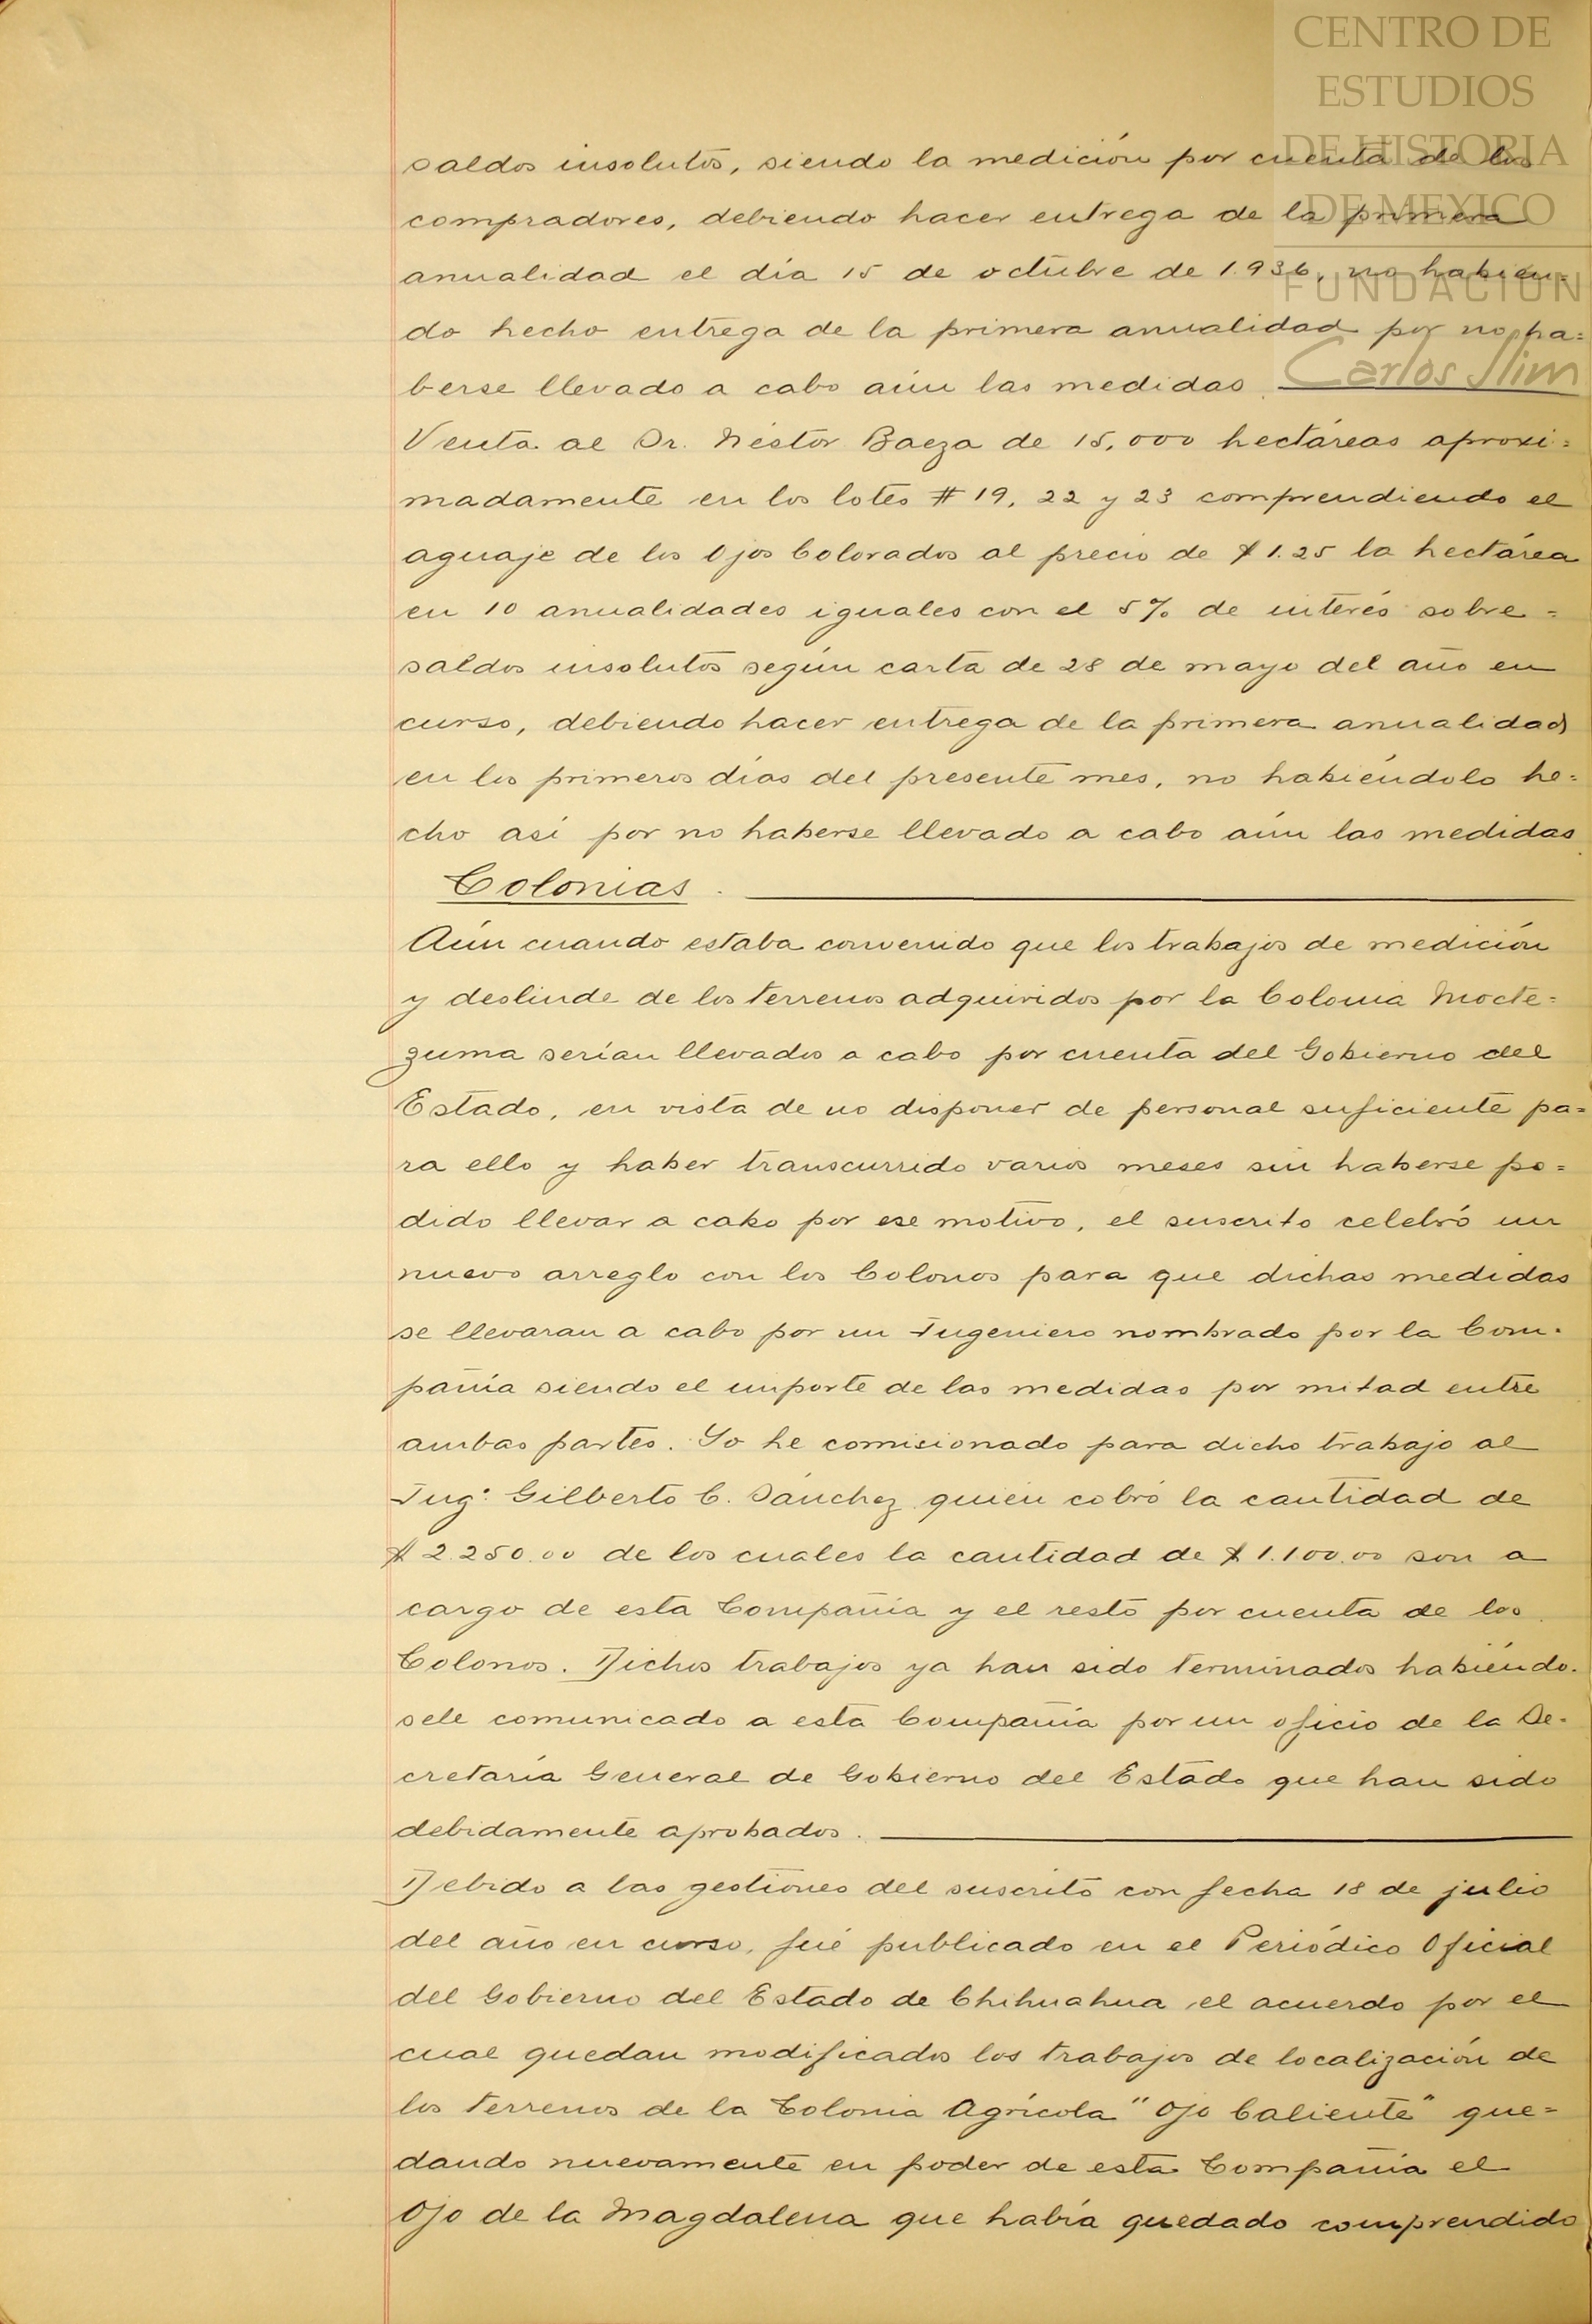 CENTRO DE
ESTUDIOS
DE HISTORIA
DE MEXICO
FUNDACION
Carlos Slim
saldos insolutos, siendo la medición por cuenta de los
compradores, debiendo hacer entrega de la primera
anualidad el día 15 de octubre de 1.936, no habien=
do hecho entrega de la primera anualidad por no ha=
berse llevado a cabo aún las medidas.
Venta al Dr. Néstor Baeza de 15,000 hectáreas aproxi=
madamente en los lotes # 19, 22 y 23 comprendiendo el
aguaje de los Ojos Colorados al precio de $ 1.25 la hectárea
en 10 anualidades iguales con el 5% de interés sobre =
saldos insolutos según carta de 28 de mayo del año en
curso, debiendo hacer entrega de la primera anualidad
en los primeros días del presente mes, no habiéndolo he=
cho así por no haberse llevado a cabo aún las medidas.
Colonias.
Aún cuando estaba convenido que los trabajos de medición
y deslinde de los terrenos adquiridos por la Colonia Mocte=
zuma serían llevados a cabo por cuenta del Gobierno del
Estado, en vista de no disponer de personal suficiente pa=
ra ello y haber transcurrido varios meses sin haberse po=
dido llevar a cabo por ese motivo, el suscrito celebró un
nuevo arreglo con los Colonos para que dichas medidas
se llevaran a cabo por un Ingeniero nombrado por la Com-
pañía siendo el importe de las medidas por mitad entre
ambas partes. Yo he comisionado para dicho trabajo al
Ing. Gilberto C. Sánchez quien cobró la cantidad de
$ 2.250.00 de los cuales la cantidad de $ 1.100.00 son a
cargo de esta Compañía y el resto por cuenta de los
Colonos. Dichos trabajos ya han sido terminados habiéndo-
sele comunicado a esta Compañía por un oficio de la Se-
cretaría General de Gobierno del Estado que han sido
debidamente aprobados.
Debido a las gestiones del suscrito con fecha 18 de julio
del año en curso, fué publicado en el Periódico Oficial
del Gobierno del Estado de Chihuahua el acuerdo por el
cual quedan modificados los trabajos de localización de
los terrenos de la Colonia Agrícola "Ojo Caliente" que=
dando nuevamente en poder de esta Compañía el
Ojo de la Magdalena que había quedado comprendido